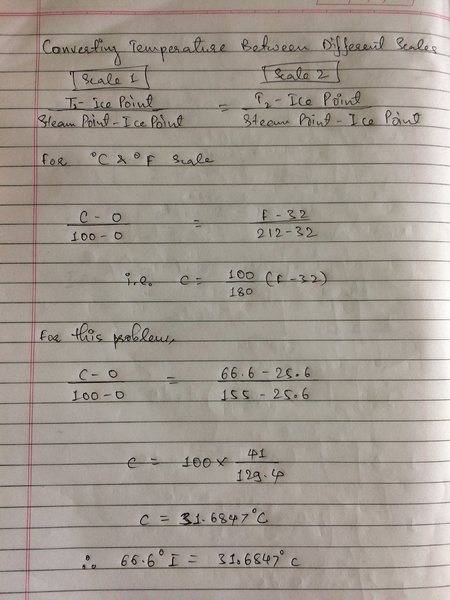 Converting Temperature Between Different Scales
Scale 1 Scale 2
T1 - Ice Point / Steam Point - Ice Point = T2 - Ice Point / Steam Point - Ice Point
For °C & °F Scale
C - 0 / 100 - 0 = F - 32 / 212 - 32
i.e. C = 100 / 180 (F - 32)
For this problem,
C - 0 / 100 - 0 = 66.6 - 25.6 / 155 - 25.6
C = 100 × 41 / 129.4
C = 31.6847°C
∴ 66.6° I = 31.6847° C